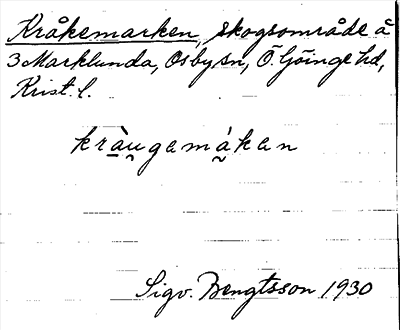 Kråkemarken, skogsområde å
3 Marklunda, Osby sn, Ö. Göinge hd,
Krist. l.
kràu̯gamá̰kan
Sigv. Bengtsson 1930